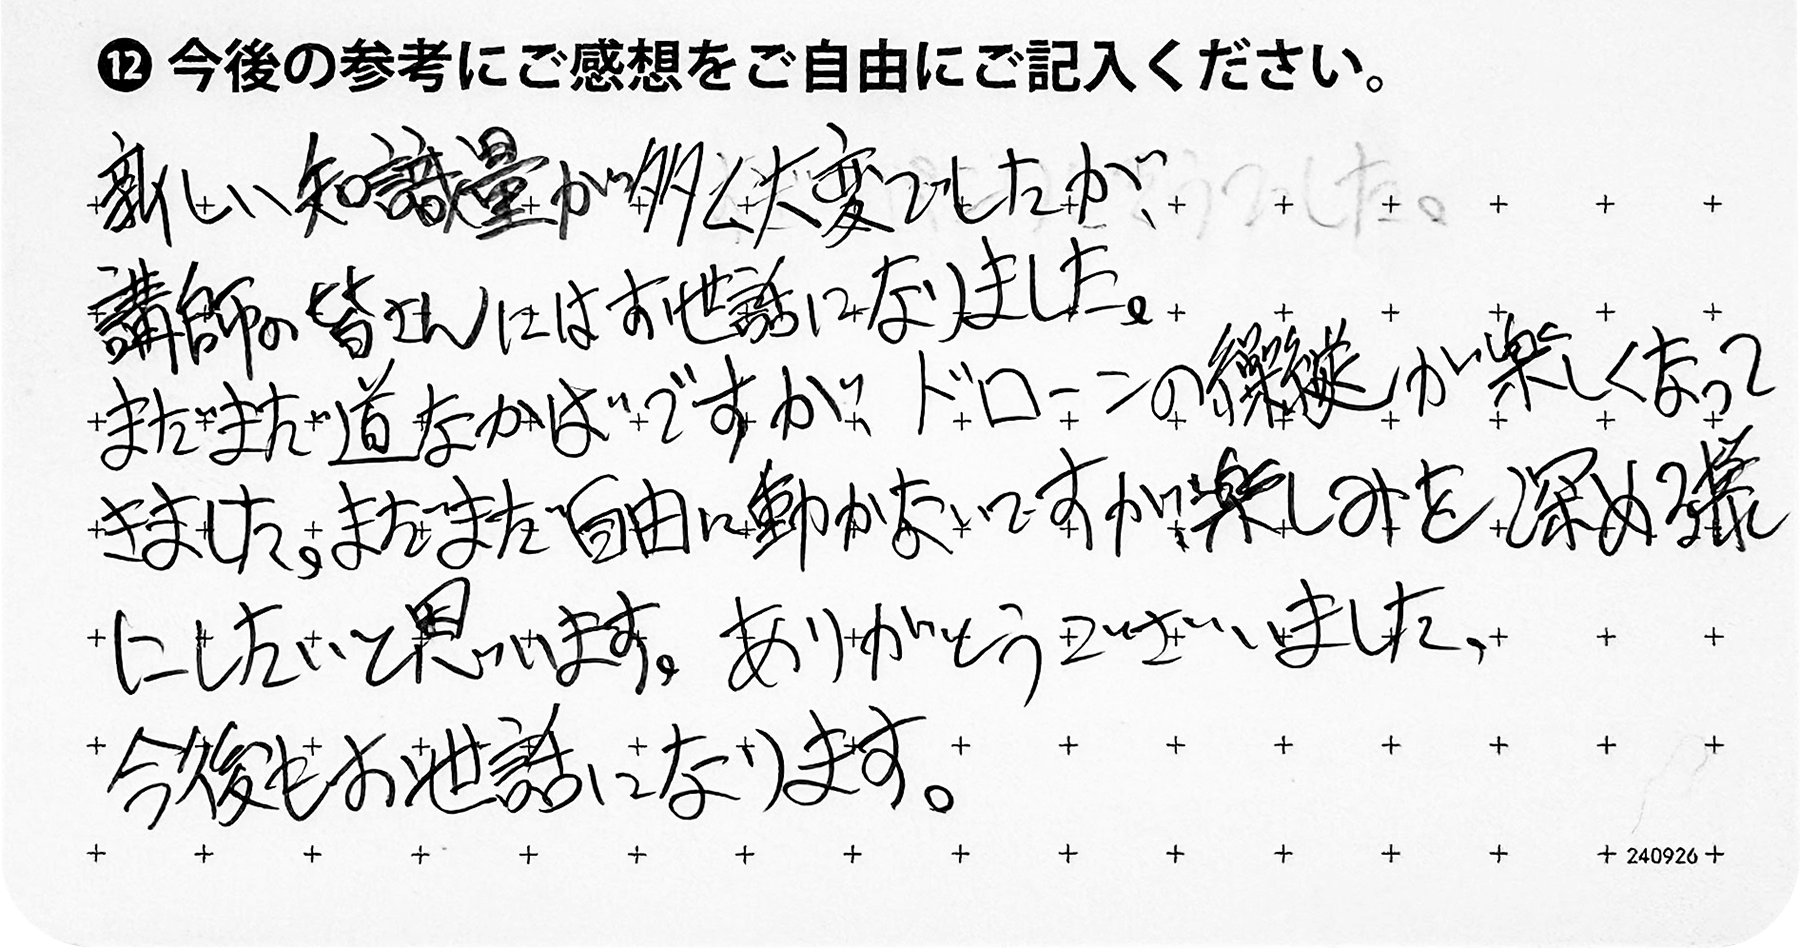 ⓬ 今後の参考にご感想をご自由にご記入ください。
新しい知識量が多く大変でしたが、
講師の皆さんにはお世話になりました。
まだまだ道なかばですが、ドローンの操縦が楽しくなって
きました。まだまだ自由に動かないですが楽しみを深める様
にしたいと思います。ありがとうございました、
今後もお世話になります。
240926